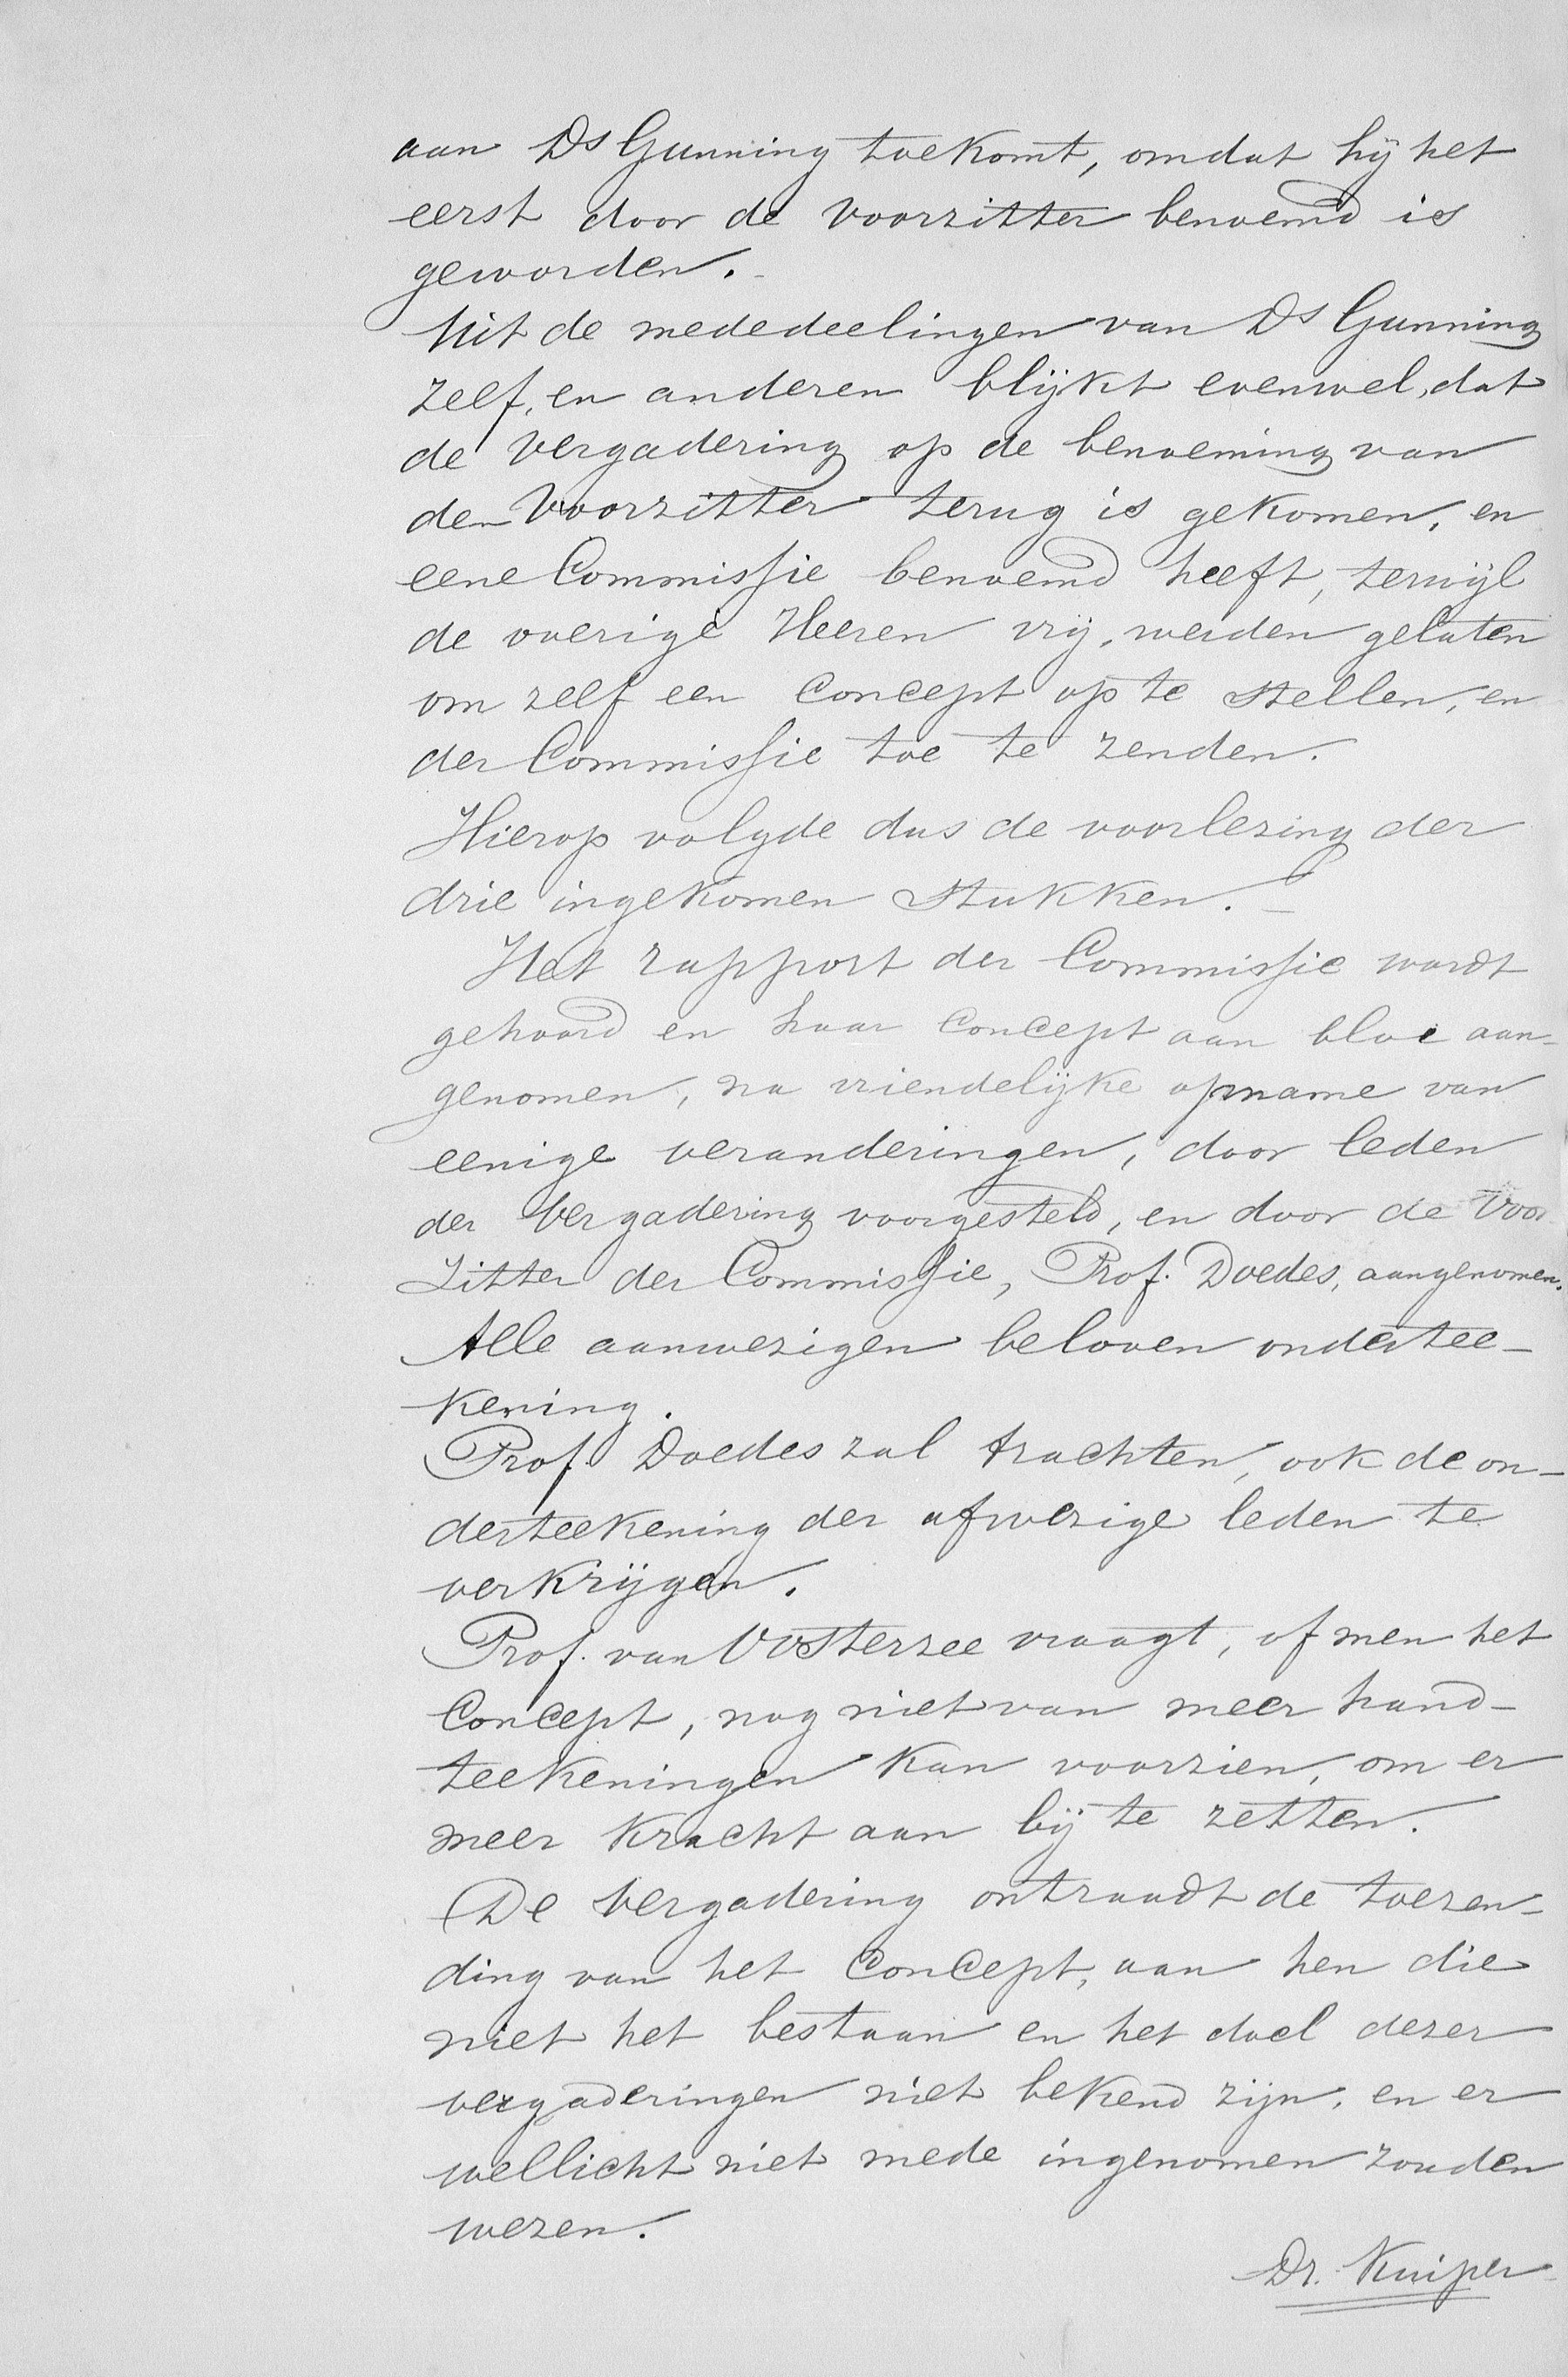 aan Ds Gunning toekomt, omdat hij het
eerst door de Voorzitter benoemd is
geworden. -
Uit de mededeelingen van Ds Gunning
zelf, en anderen blijkt evenwel, dat
de Vergadering op de benoeming van
den Voorzitter terug is gekomen, en
eene Commissie benoemd heeft, terwijl
de overige Heeren vrij, werden gelaten
om zelf een Concept op te stellen, en
der Commissie toe te zenden.
Hierop volgde dus de voorlezing der
drie ingekomen Stukken. -
Het rapport der Commissie wordt
gehoord en haar Concept aan bloc aan-
genomen, na vriendelijke opname van
eenige veranderingen, door leden
der Vergadering voorgesteld, en door de Voor
Zitter der Commissie, Prof. Doedes, aangenomen.
Alle aanwezigen beloven ondertee-
kening.
Prof. Doedes zal trachten, ook de on-
derteekening der afwezige leden te
verkrijgen.
Prof. van Oosterzee vraagt, of men het
Concept, nog niet van meer hand-
teekeningen kan voorzien, om er
meer kracht aan bij te zetten.
De Vergadering ontraadt de toezen-
ding van het Concept, aan hen die
niet het bestaan en het doel dezer
vergaderingen niet bekend zijn, en er
wellicht niet mede ingenomen zouden
wezen.
Dr. Kuiper